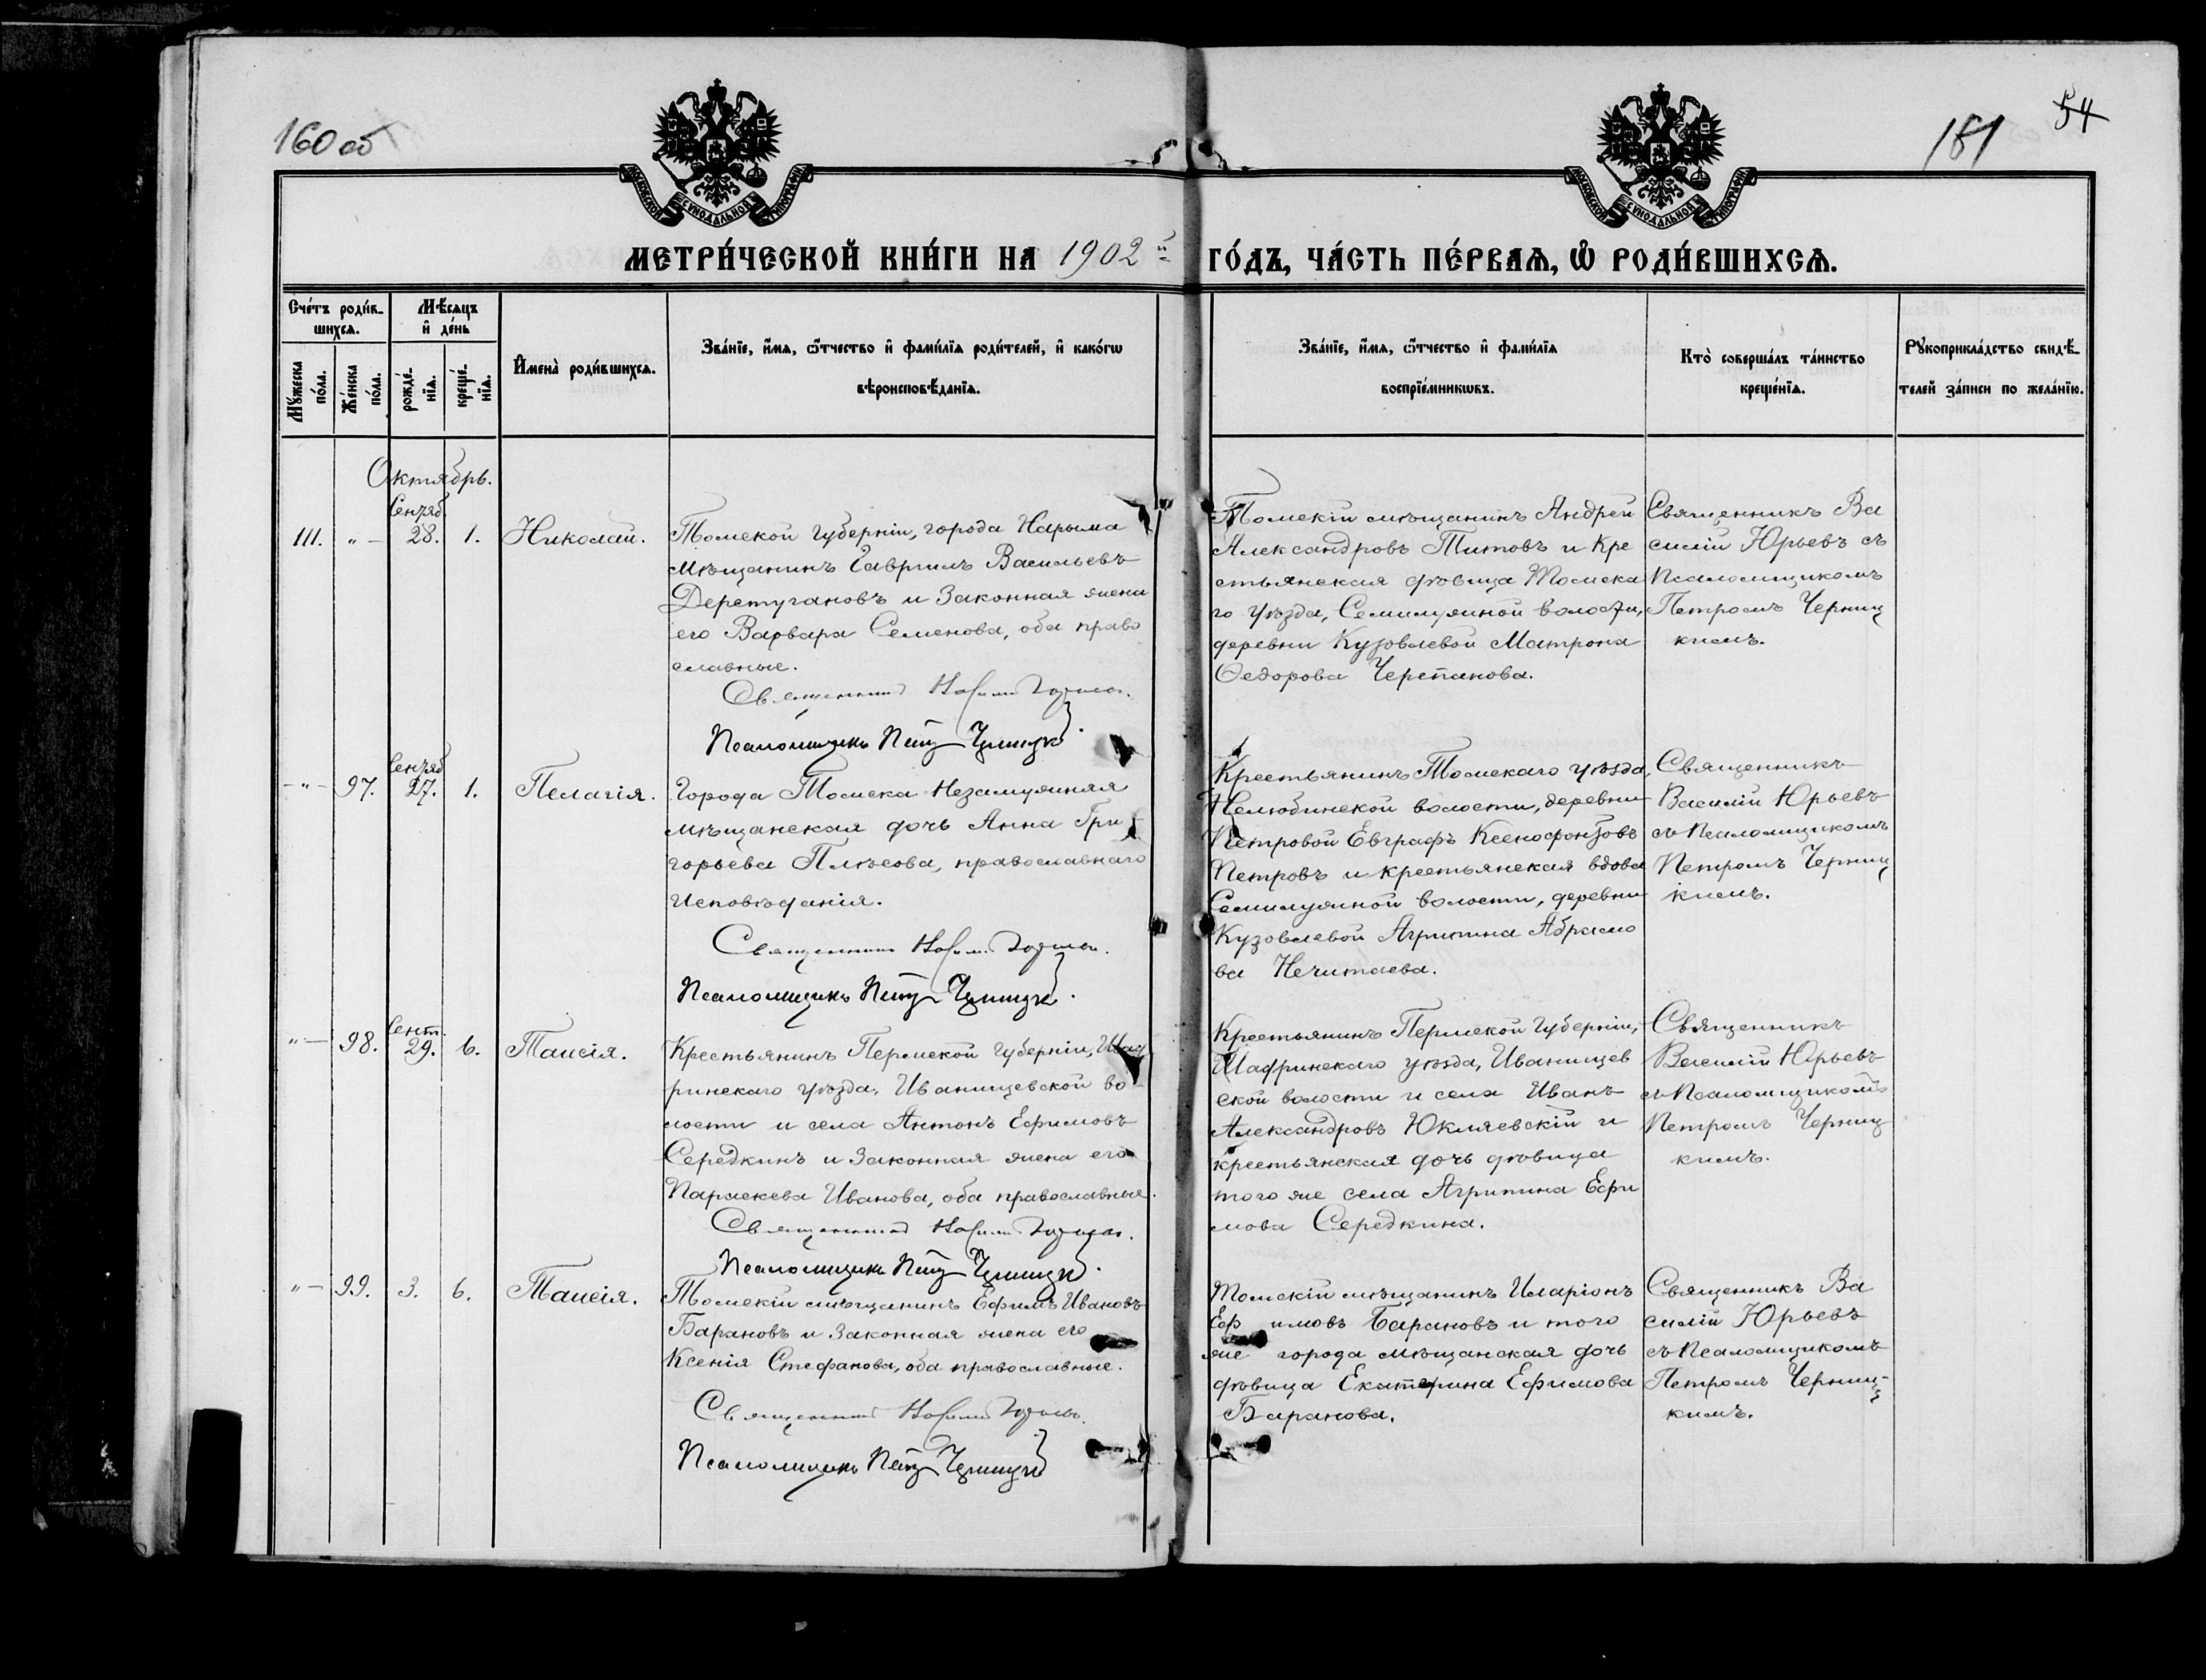 160 об
181
54
МОСКОВСКОЙ СѴНОДАЛЬНОЙ ТИПОГРАФІИ
МОСКОВСКОЙ СѴНОДАЛЬНОЙ ТИПОГРАФІИ
МЕТРИ́ЧЕСКОЙ КНИ́ГИ НА 1902й ГО́ДЪ, ЧА́СТЬ ПЕ́РВАѦ, Ѡ҆ РОДИ́ВШИХСѦ.
Сче́тъ роди́в-
шихсѧ.
Мꙋ́жеска по́ла.
Же́нска по́ла.
Мѣ́сѧцъ
и҆ де́нь
рожде́-
нїѧ.
креще́-
нїѧ.
И҆мена̀ роди́вшихсѧ.
Зва́нїе, и҆́мѧ, ѻ҆́тчество и҆ фами́лїѧ роди́телей, и҆ како́гѡ
вѣроисповѣ́данїѧ.
Зва́нїе, и҆́мѧ, ѻ҆́тчество и҆ фами́лїѧ
воспрїе́мникѡвъ.
Кто̀ соверша́лъ та́инство
креще́нїѧ.
Рꙋкоприкла́дство свидѣ́-
телей за́писи по жела́нїю.
Октябрь.
111. " — Сентяб. 28. 1. Николай.
Томской губерніи, города Нарыма
мѣщанинъ Гавріилъ Васильевъ
Деретугановъ и законная жена
его Варвара Семенова, оба право
славные.
Священникъ Василій Юрьевъ.
Псаломщикъ Петръ Черницкій.
Томскій мѣщанинъ Андрей
Александровъ Титовъ и кре
стьянская дѣвица Томска
го уѣзда, Семилужной волости,
деревни Кузовлевой Матрона
Ѳедорова Черепанова.
Священникъ Ва
силій Юрьевъ съ
Псаломщикомъ
Петромъ Черниц
кимъ.
— " — 97. Сентяб 27. 1. Пелагія.
Города Томска незамужняя
мѣщанская дочь Анна Гри
горьева Плѣсова, православнаго
исповѣданія.
Священникъ Василій Юрьевъ.
Псаломщикъ Петръ Черницкій.
Крестьянинъ Томскаго уѣзда,
Нелюбинской волости, деревни
Петровой Евграфъ Ксенофонтовъ
Петровъ и крестьянская вдова
Семилужной волости, деревни
Кузовлевой Агрипина Абрамо
ва Нечитаева.
Священникъ
Василій Юрьевъ
съ Псаломщикомъ
Петромъ Черниц
кимъ.
" — 98. Сент. 29. 6. Таисія.
Крестьянинъ Пермской губерніи, Шад
ринскаго уѣзда, Иванищевской во
лости и села Антонъ Ефимовъ
Середкинъ и законная жена его
Параскева Иванова, оба православные.
Священникъ Василій Юрьевъ.
Псаломщикъ Петръ Черницкій.
Крестьянинъ Пермской губерніи,
Шадринскаго уѣзда, Иванищев
ской волости и села Иванъ
Александровъ Юкляевскій и
крестьянская дочь дѣвица
того же села Агрипина Ефи
мова Середкина.
Священникъ
Василій Юрьевъ
съ Псаломщикомъ
Петромъ Черниц
кимъ.
" — 99. 3. 6. Таисія.
Томскій мѣщанинъ Ефимъ Ивановъ
Барановъ и законная жена его
Ксенія Стефанова, оба православные.
Священникъ Василій Юрьевъ.
Псаломщикъ Петръ Черницкій
Томскій мѣщанинъ Иларіонъ
Еф имовъ Барановъ и того
же города мѣщанская дочь
дѣвица Екатерина Ефимова
Баранова.
Священникъ Ва
силій Юрьевъ
съ Псаломщикомъ
Петромъ Черниц-
кимъ.